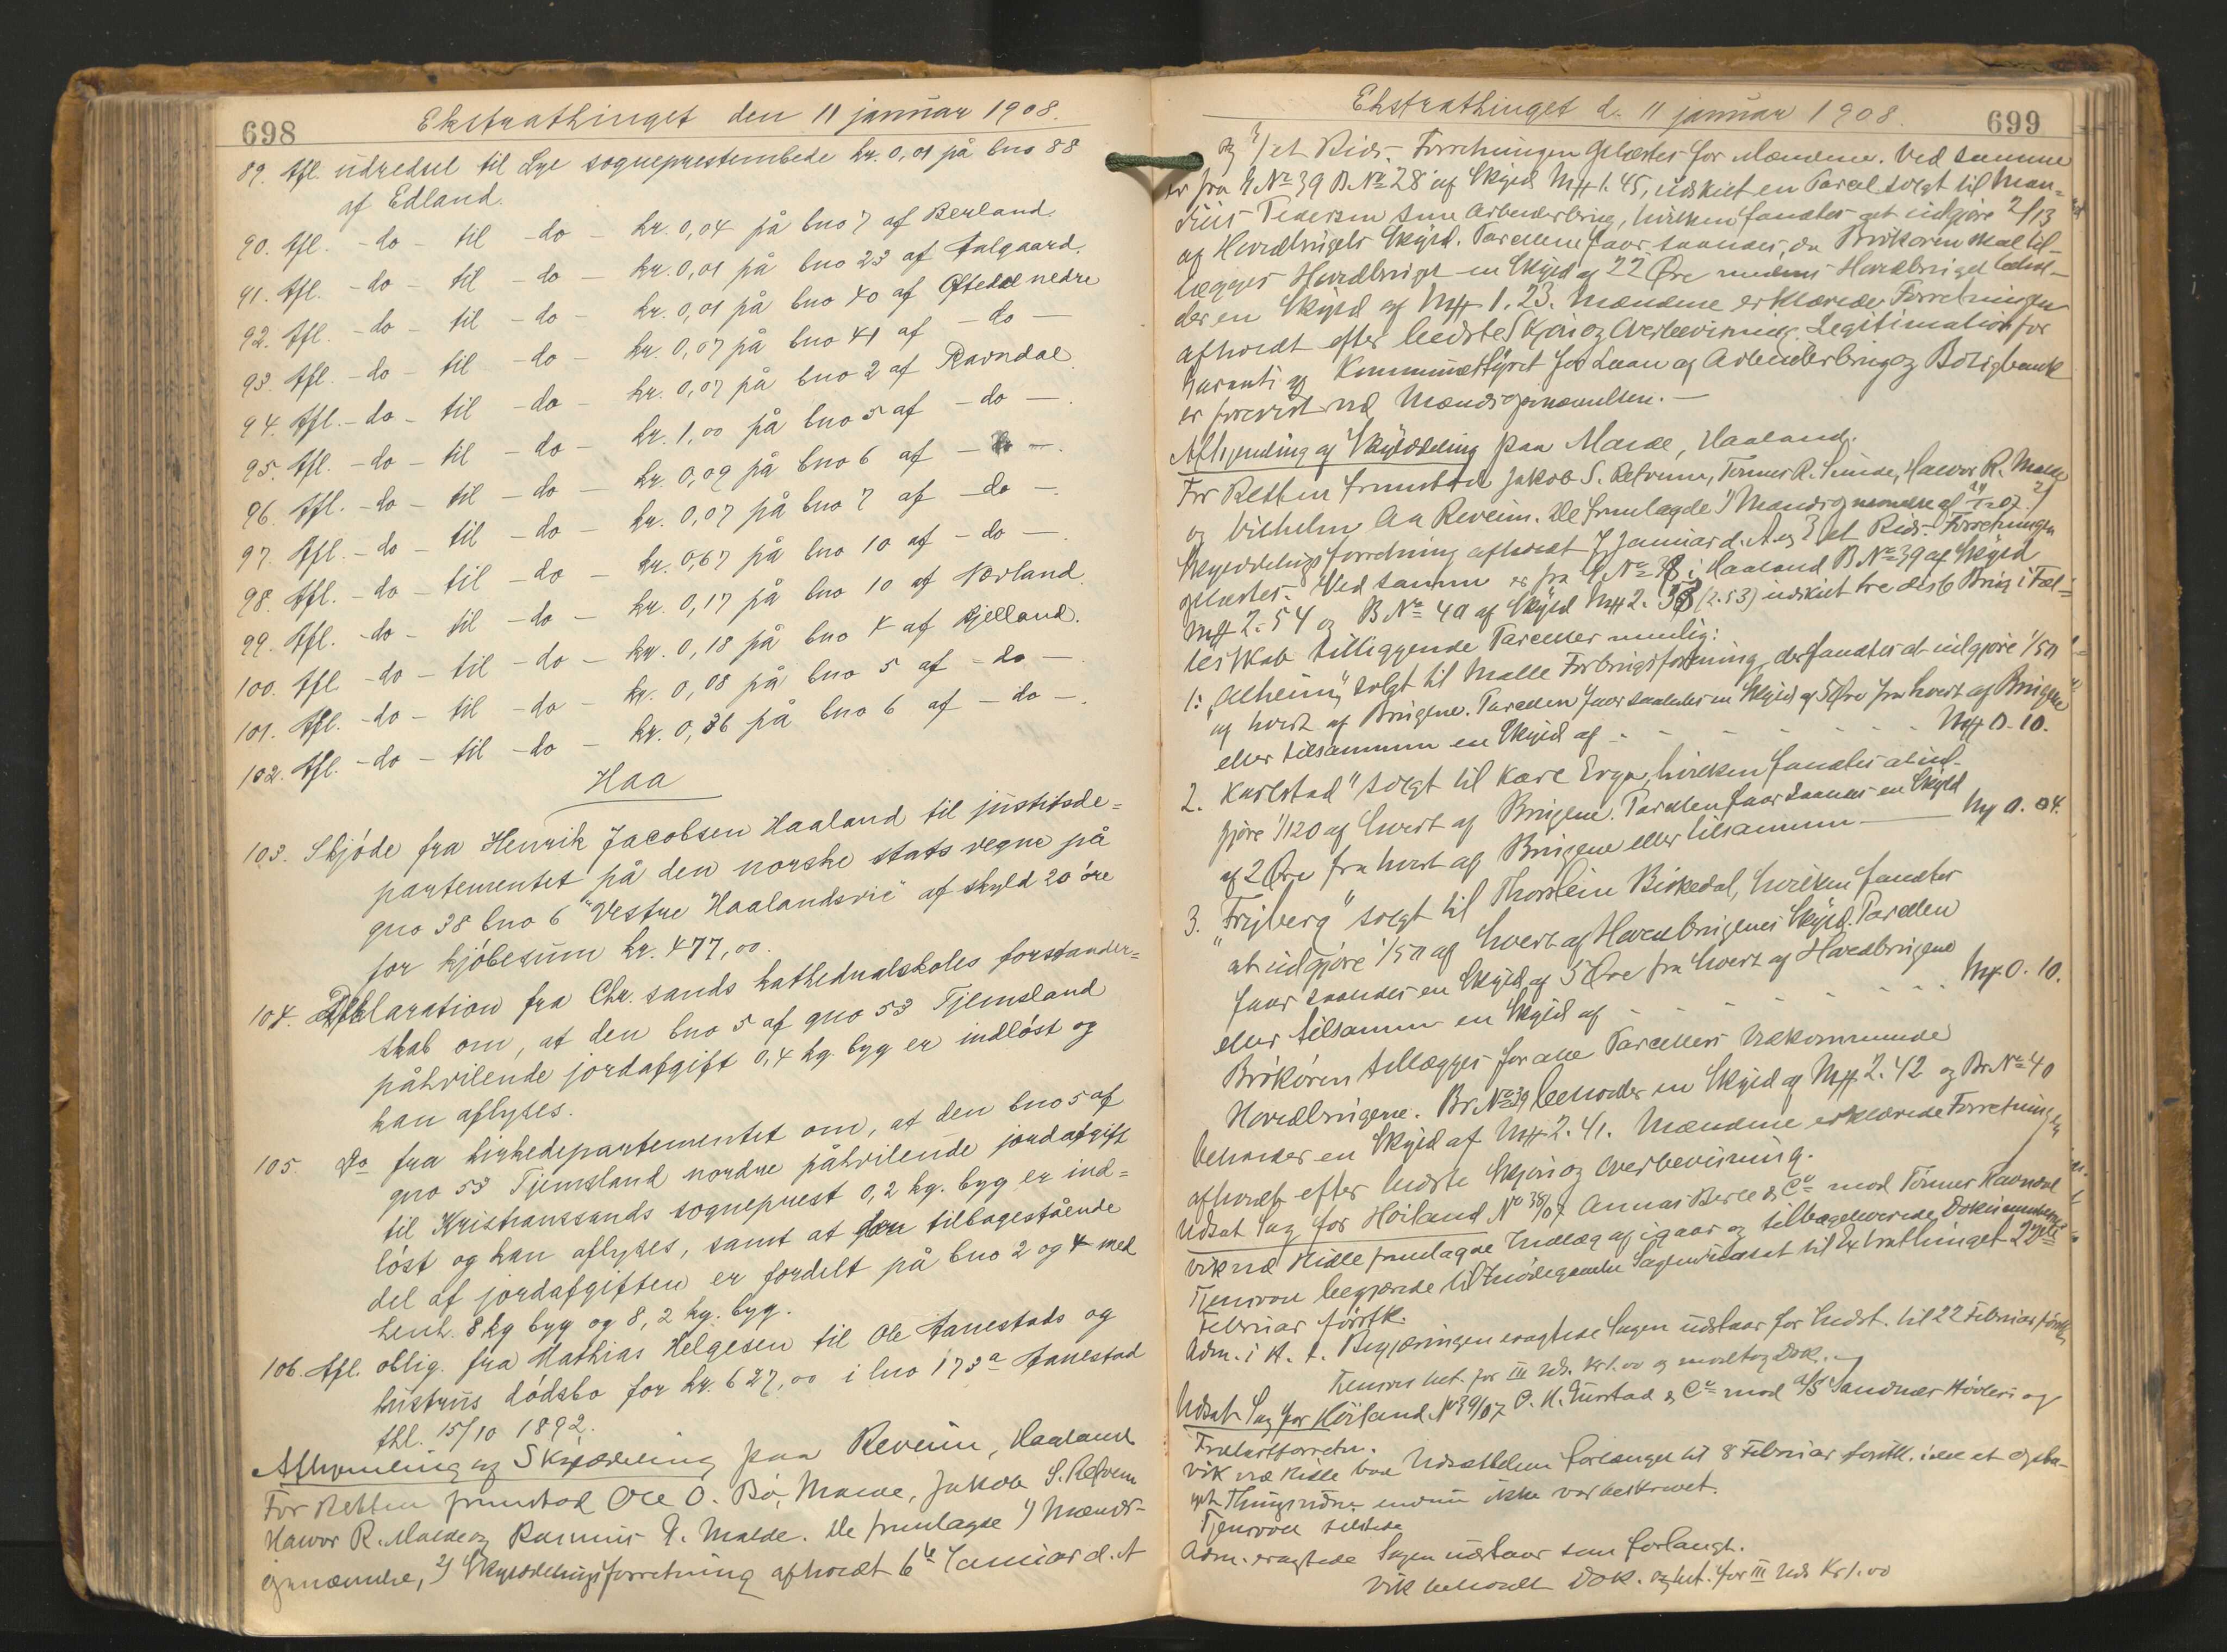 698
Ekstrathinget den 11 januar 1908.
89. Afl. udredsel til Lye sogneprestembede kr. 0,01 på bno 88
af Edland.
90. Afl. - do - til - do - kr. 0,04 på bno 7 af Berland.
91. Afl. - do - til - do - kr. 0,01 på bno 23 af Aalgaard.
92. Afl. - do - til - do - kr. 0,01 på bno 40 af Oftedal nedre
93. Afl. - do - til - do - kr. 0,07 på bno 41 af - do -
94. Afl. - do - til - do - kr. 0,07 på bno 2 af Ravndal.
95. Afl. - do - til - do - kr. 1,00 på bno 5 af - do -.
96. Afl. - do - til - do - kr. 0,09 på bno 6 af - do -.
97. Afl. - do - til - do - kr. 0,07 på bno 7 af - do -.
98. Afl. - do - til - do - kr. 0,67 på bno 10 af - do -.
99. Afl. - do - til - do - kr. 0,17 på bno 10 af Norland.
100. Afl. - do - til - do - kr. 0,18 på bno 4 af Kjelland.
101. Afl. - do - til - do - kr. 0,08 på bno 5 af - do -
102. Afl. - do - til - do - kr. 0,36 på bno 6 af - do -.
Haa
103. Skjøde fra Henrik Jacobsen Haaland til justitsde=
partementet på den norske stats vegne på
gno 38 bno 6 "Vestre Haalandsvie" af skyld 20 øre
for kjøbesum kr. 477,00.
104. Deklaration fra Chr. sands kathedralskoles forstander=
skab om, at den bno 5 af gno 53 Tjemsland
påhvilende jordafgift 0,4 kg. byg er indløst og
kan aflyses.
105. Do fra kirkedepartementet om, at den bno 5 af
gno 53 Tjemsland nordre påhvilende jordafgift
til Kristianssands sogneprest 0,2 kg. byg er ind=
løst og kan aflyses, samt at den tilbagestående
del af jordafgiften er fordelt på bno 2 og 4 med
henh. 8 kg byg og 8,2 kg. byg.
106. Afl. oblig. fra Mathias Helgesen til Ole Aanestads og
hustrus dødsbo for kr. 627,00 i lno 173a Aanestad
thl. 15/10 1892.
Afhjemling af Skylddeling paa Reveim, Haaland
For Retten fremstod Ole O. Bø, Malde, Jakob S. Refvem
Havor R. Malde og Rasmus T. Malde. De fremlagde 1) Mænds-
opnævnelse, 2) Skylddelingsforretning afholdt 6te Januar d. A
Ekstrathinget d. 11 januar 1908.
699
og 3/ et Rids. Forretningen oplæstes for Mændene. Ved samme
er fra G. No 39 B. No 28 af Skyld Mk 1.45, udskilt en Parcel solgt til Man=
dius Pedersen som Arbeiderbrug, hvilken fandtes at udgjøre 2/13
af Hovedbrugets Skyld. Parcellen faar saaledes, da Brøkøren skal til-
lægges Hovedbruget en Skyld af 22 Øre medens Hovedbruget behol-
der en Skyld af Mk 1.23. Mændene erklærede Forretningen
afholdt efter bedste Skjøn og Overbevisning. Legitimation for
Garanti af Kommunestyret for Laan af Arbeiderbrug og Boligbank
er forevist ved Mændsopnævnelsen.—
Afhjemling af Skylddeling paa Malde, Haaland.
For Retten fremstod Jakob S. Refvem, Tønnes R. Sunde, Havor R. Malde
og Vilhelm Aa Reveim. De fremlagde 1) Mændsopnævnelse af 2)
Skylddelingsforretning afholdt 7 Januar d. A og 3) et Rids. Forretningen
oplæstes. Ved samme er fra G. No 38 i Haaland B No 39 af Skyld
Mk 2.54 og B. No 40 af Skyld Mk 2. (2.53) udskilt tre disse Brug i Fæl=
lesskab tilliggende Parceller nemlig:
1: "Alheim" solgt til Malle Forbrugsforening, der fandtes at udgjøre 1/50
af hvert af Brugene. Parcellen faar saaledes en Skyld af 5 Øre fra hvert af Brugene
eller tilsammen en Skyld af - - - - - - Mk 0.10.
2. "Karlstad" solgt til Kare Erga, hvilken fandtes at ud-
gjøre 1/120 af hvert af Brugene. Parcellen faar saaledes en Skyld
af 2 Øre fra hvert af Brugene eller tilsammen — Mk 0.04.
3. "Fryberg" solgt til Thorstein Birkedal, hvilken fandtes
at udgjøre 1/50 af hvert af Hovedbrugenes Skyld. Parcellen
faar saaledes en Skyld af 5 Øre fra hvert af Hovedbrugene
eller tilsammen en Skyld af - - - - - - Mk 0.10.
Brøkøren tillægges for alle Parcellers Vedkommende
Hovedbrugene. Br. No 39 beholder en Skyld af Mk 2.42 og Br. No 40
beholder en Skyld af Mk 2.41. Mændene erklærede Forretningen
afholdt efter bedste Skjøn og Overbevisning.
Udsat Sag for Høiland No 38/07 Annas Berle & Co mod Tønnes Ravndal
Vik ved Kidle fremlagde Indlæg af igaar og tilbageleverede Dokumenterne
Tjensvoll begjærede til Imødegaaelse Sagen udsat til Extrathinget 22de
Februar førstk.
Adm. i H. t. Begjæringen eragtede Sagen udstaar for Indst. til 22 Februar førstk.
Tjensvoll bet. for III Uds. Kr 1.00 og modtog Dok.
Udsat Sag for Høiland No 39/07 O. H. Tunstad & Co mod A/S Sandnes Høvleri og
Trælastforretn.
Vik ved Kidle bad Udsættelsen forlænget til 8 Februar førstk. idet et opta-
get Thingsvidne endnu ikke var beskrevet.
Tjensvoll tilstede
Adm. eragtede Sagen udstaar som forlangt.
Vik beholdt Dok. og bet. for III Uds Kr 1.00